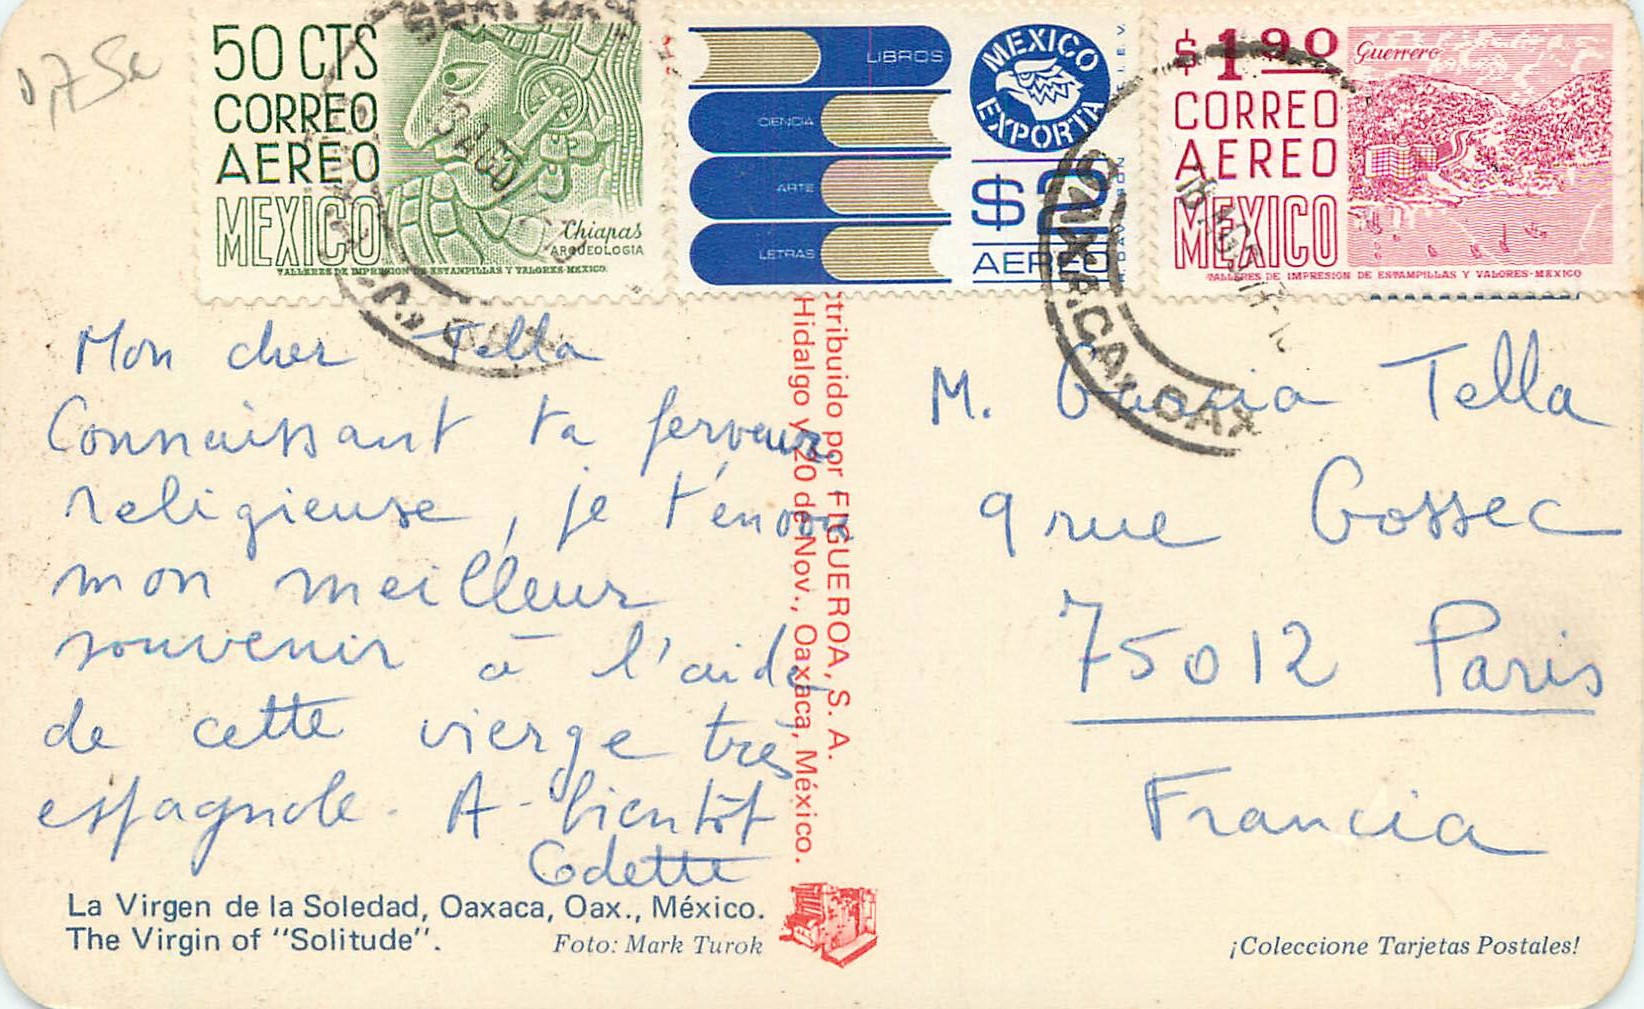 0,75e
50 CTS
CORREO
AEREO
MEXICO
Chiapas
ARQUEOLOGIA
TALLERES DE IMPRESION DE ESTAMPILLAS Y VALORES-MEXICO.
LIBROS
CIENCIA
ARTE
LETRAS
MEXICO
EXPORTA
$2
AEREO
$1.90
CORREO
AEREO
MEXICO
Guerrero
TALLERES DE IMPRESION DE ESTAMPILLAS Y VALORES-MEXICO
OAXACA, OAX
Mon cher Tella
Connaissant ta ferveur
religieuse, je t'envoie
mon meilleur
souvenir à l'aide
de cette vierge très
espagnole. A bientôt
Odette
tribuido por FIGUEROA, S. A.
Hidalgo y 20 de Nov., Oaxaca, México.
M. Garcia Tella
9 rue Gossec
75012 Paris
Francia
La Virgen de la Soledad, Oaxaca, Oax., México.
The Virgin of "Solitude".
Foto: Mark Turok
¡Coleccione Tarjetas Postales!